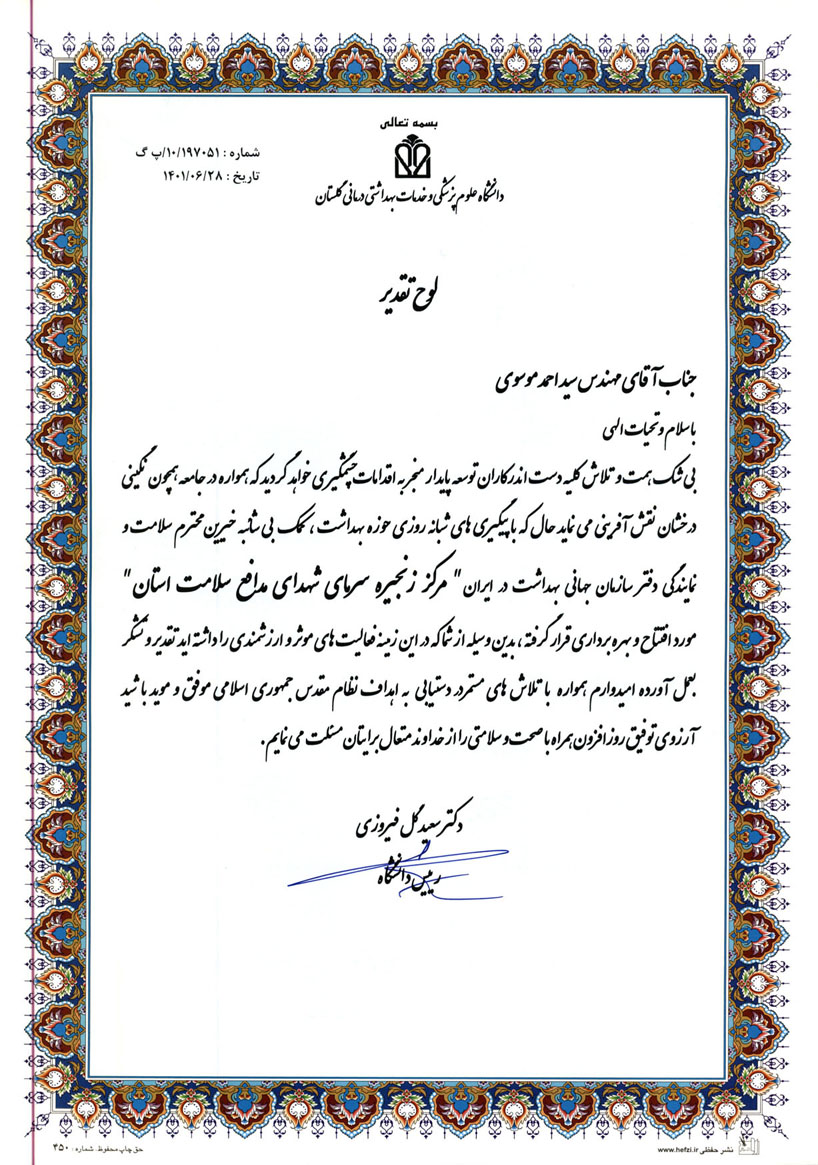 بسمه تعالی
شماره : ۱۰/۱۹۷۰۵۱/پ گ
تاریخ : ۱۴۰۱/۰۶/۲۸
دانشگاه علوم پزشکی و خدمات بهداشتی درمانی گلستان
لوح تقدیر
جناب آقای مهندس سید احمد موسوی
با سلام و تحیات الهی
بی شک همت و تلاش کلیه دست اندرکاران توسعه پایدار منجر به اقدامات چشمگیری خواهد گردید که همواره در جامعه همچون نگینی
درخشان نقش آفرینی می نماید حال که با پیگیری های شبانه روزی حوزه بهداشت ، کمک بی شائبه خیرین محترم سلامت و
نمایندگی دفتر سازمان جهانی بهداشت در ایران " مرکز زنجیره سرمای شهدای مدافع سلامت استان "
مورد افتتاح و بهره برداری قرار گرفته ، بدین وسیله از شما که در این زمینه فعالیت های موثر و ارزشمندی را داشته اید تقدیر و تشکر
بعمل آورده امیدوارم همواره با تلاش های مستمر در دستیابی به اهداف نظام مقدس جمهوری اسلامی موفق و موید باشید
آرزوی توفیق روز افزون همراه با صحت و سلامتی را از خداوند متعال برایتان مسئلت می نمایم.
دکتر سعید گل فیروزی
رییس دانشگاه
نشر حفظی www.hefzi.ir
حق چاپ محفوظ. شماره : ۳۵۰